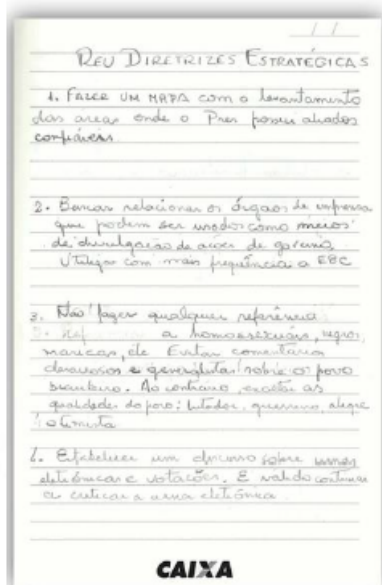 / /
REU DIRETRIZES ESTRATÉGICAS
1. FAZER UM MAPA com o levantamento
das áreas onde o Pres possui aliados
confiáveis.
2. Buscar relacionar os órgãos de imprensa
que podem ser usados como meios
de divulgação de ações de governo.
Utilizar com mais frequência a EBC
3. Não fazer qualquer referência
a homossexuais, negros,
maricas, etc Evitar comentários
desairosos e generalistas sobre o povo
brasileiro. Ao contrário, exaltar as
qualidades do povo: lutador, guerreiro, alegre
otimista
Estabelecer um discurso sobre urnas
eletrônicas e votações. É válido continuar
a criticar a urna eletrônica.
CAIXA